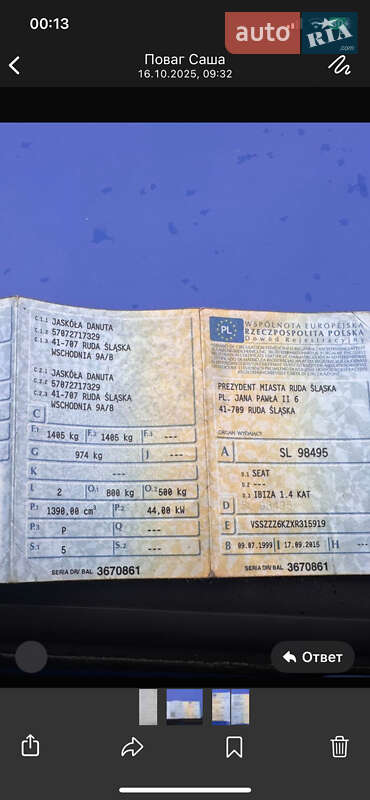 00:13
auto RIA .com
Поваг Саша
16.10.2025, 09:32
C.1.1 JASKÓŁA DANUTA
C.1.2 57072717329
C.1.3 41-707 RUDA ŚLĄSKA
WSCHODNIA 9A/8
C.2.1 JASKÓŁA DANUTA
C.2.2 57072717329
C.2.3 41-707 RUDA ŚLĄSKA
WSCHODNIA 9A/8
C
F.1 1405 kg F.2 1405 kg F.3 ---
G 974 kg J ---
K ---
L 2 O.1 800 kg O.2 500 kg
P.1 1390,00 cm³ P.2 44,00 kW
P.3 P Q ---
S.1 5 S.2 ---
SERIA DR/ BAL 3670861
PL
WSPÓLNOTA EUROPEJSKA
RZECZPOSPOLITA POLSKA
Dowód Rejestracyjny
PREZYDENT MIASTA RUDA ŚLĄSKA
PL. JANA PAWŁA II 6
41-709 RUDA ŚLĄSKA
ORGAN WYDAJĄCY
A SL 98495
D.1 SEAT
D.2 ---
D
D.3 IBIZA 1.4 KAT
E VSSZZZ6KZXR315919
B 09.07.1999 I 17.09.2015 H ---
SERIA DR/ BAL 3670861
Ответ